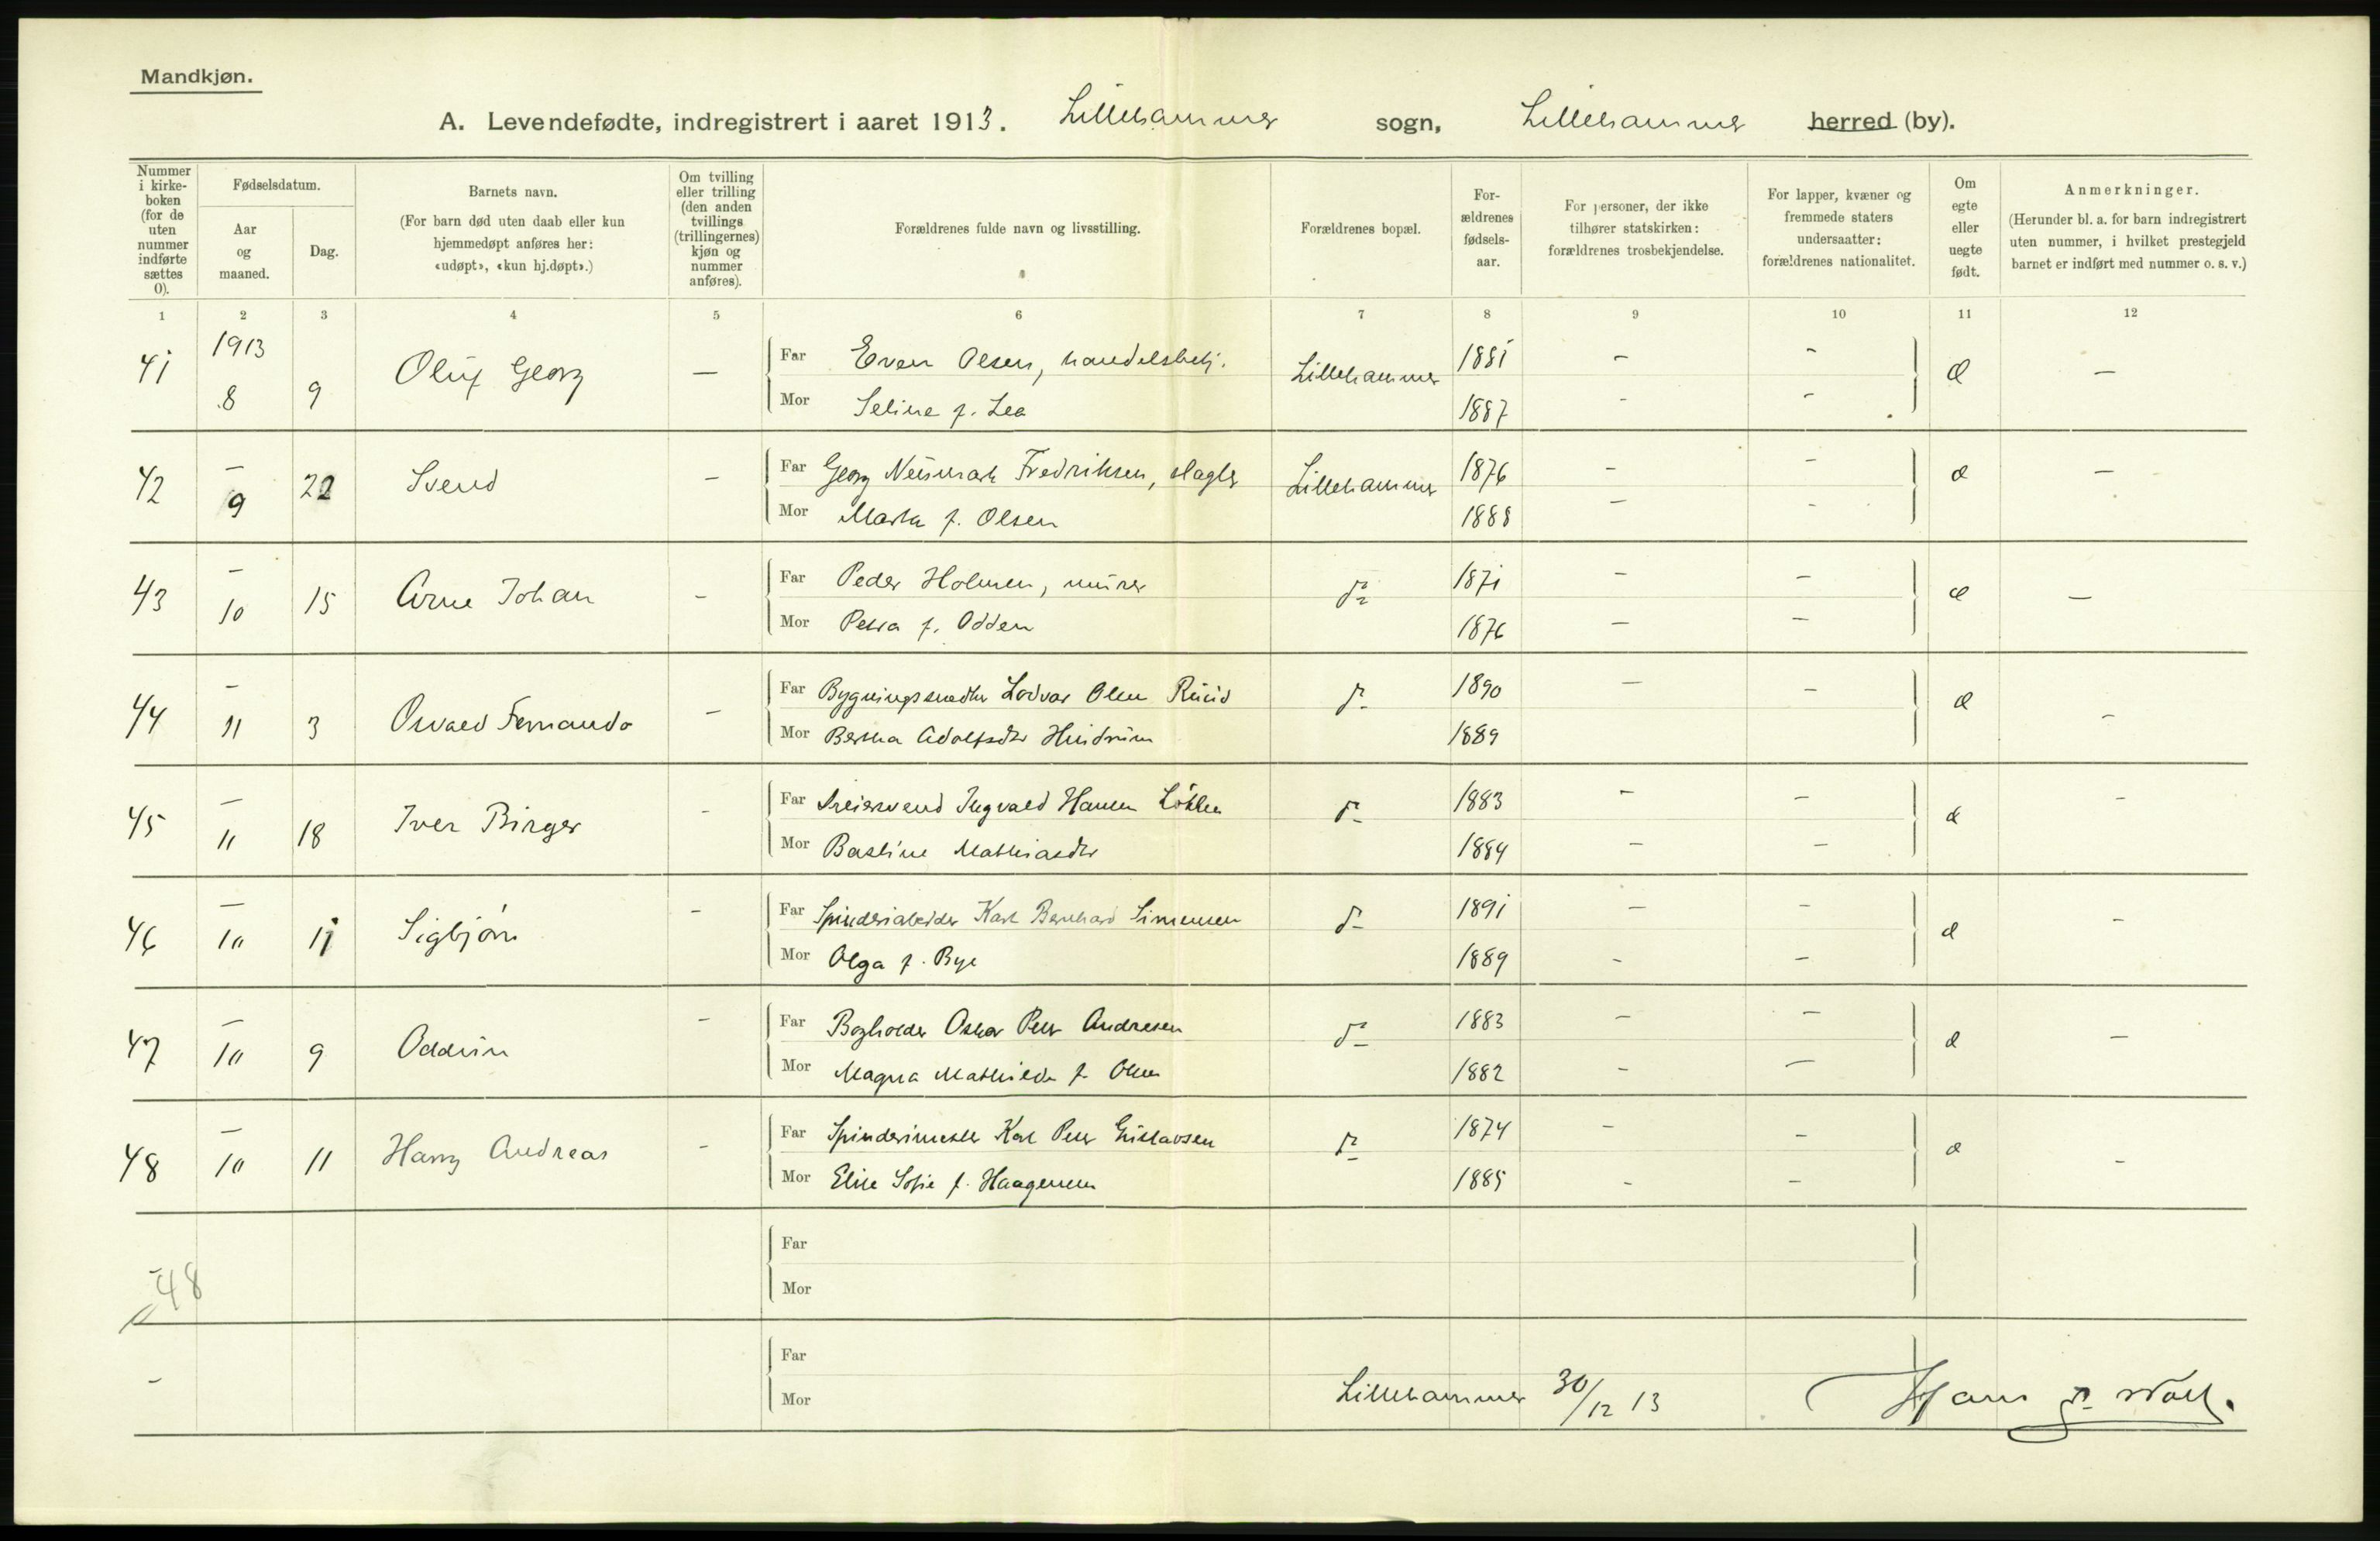 Mandkjøn.
A. Levendefødte, indregistrert i aaret 1913. Lillehammer sogn, Lillehammer herred (by).
Nummer i kirke-boken (for de uten nummer indførte sættes 0).
Fødselsdatum.
Aar og maaned.
Dag.
Barnets navn.
(For barn død uten daab eller kun hjemmedøpt anføres her: «udøpt», «kun hj.døpt».)
Om tvilling eller trilling (den anden tvillings (trillingernes) kjøn og nummer anføres).
Forældrenes fulde navn og livsstilling.
Forældrenes bopæl.
For-ældrenes fødsels-aar.
For personer, der ikke tilhører statskirken: forældrenes trosbekjendelse.
For lapper, kvæner og fremmede staters undersaatter: forældrenes nationalitet.
Om egte eller uegte født.
Anmerkninger.
(Herunder bl. a. for barn indregistrert uten nummer, i hvilket prestegjeld barnet er indført med nummer o. s. v.)
1 2 3 4 5 6 7 8 9 10 11 12
41 1913 8 9 Oluf Georg — Far Even Olsen, handelsbetj. Lillehammer 1881 - - —
Mor Seline f. Lea 1887 - -
42 — 9 22 Svend - Far Georg Neumark Fredriksen, slagter Lillehammer 1876 - - —
Mor Marta f. Olsen 1888 - -
43 — 10 15 Arne Johan - Far Peder Holmen, murer do 1871 - - —
Mor Petra f. Odden 1876 - -
44 — 11 3 Osvald Fernando - Far Bygningssnedker Lodvar Olsen Ruud do 1890 - - -
Mor Bertha Adolfsdtr Hindrum 1889
45 — 11 18 Iver Birger - Far Dreiersvend Ingvald Hansen Løkken do 1883 - - -
Mor Basline Mathiasdtr 1884 - -
46 — 10 11 Sigbjørn - Far Spinderiarbeider Karl Bernhard Simensen do 1891 - - -
Mor Olga f. Bye 1889 - -
47 — 10 9 Oddvin - Far Bogholder Oskar Peter Andresen do 1883 - - —
Mor Magna Mathilde f. Olsen 1882 - -
48 — 10 11 Harry Andreas - Far Spinderimester Karl Peter Gustavsen do 1874 - - -
Mor Elise Sofie f. Haagensen 1885 - -
48 Far
Mor
- Far
Mor Lillehammer 30/12 13 Hans